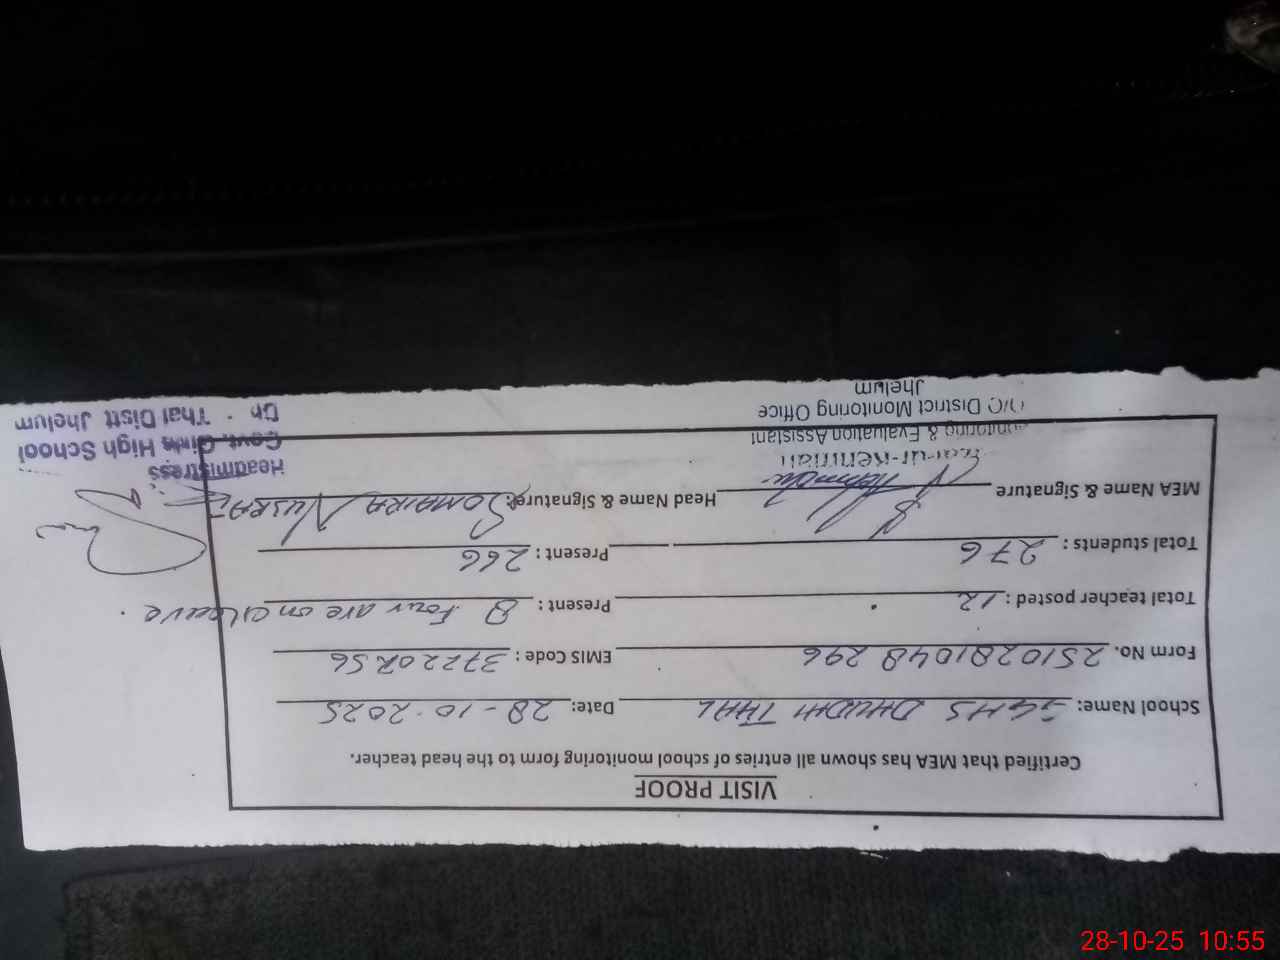 VISIT PROOF
Certified that MEA has shown all entries of school monitoring form to the head teacher.
School Name: GGHS DHUDHI THAL Date: 28-10-2025
Form No. 2510281048296 EMIS Code: 37220256
Total teacher posted: 12 Present: 8 Four are on leave.
Total students: 276 Present: 266
MEA Name & Signature Head Name & Signature: SOMAIRA NUSRAT
Monitoring & Evaluation Assistant
O/O District Monitoring Office
Jhelum
Headmistress
Govt. Girls High School
Thal Distt Jhelum
28-10-25 10:55